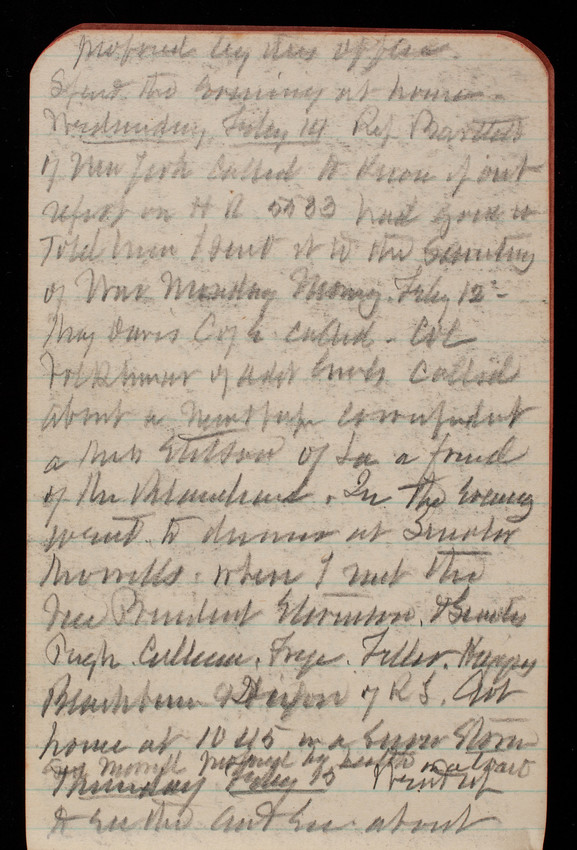 by this office.
Spend the Evening at home.
Wednesday Feby 14 Rep Bartlett
of New York called to know if our
report on H R 5583 had gone in
Told him I sent it to the Secretary
of War Monday Feby 12 -
Maj Davis called. Col
of called
about a correspondent
a Mrs of La a friend
of the Blanchard. In the Evening
went to dinner at Senator
Morrills. where I met the
Vice President Stevenson. Senators
Pugh. Cullom. Frye. Teller. Higgins
Blackburn & Dixon of R I. Got
home at 10 45 in a Snow Storm
and Morrill by health
Thursday Feby 15 Went up
to See the and See about